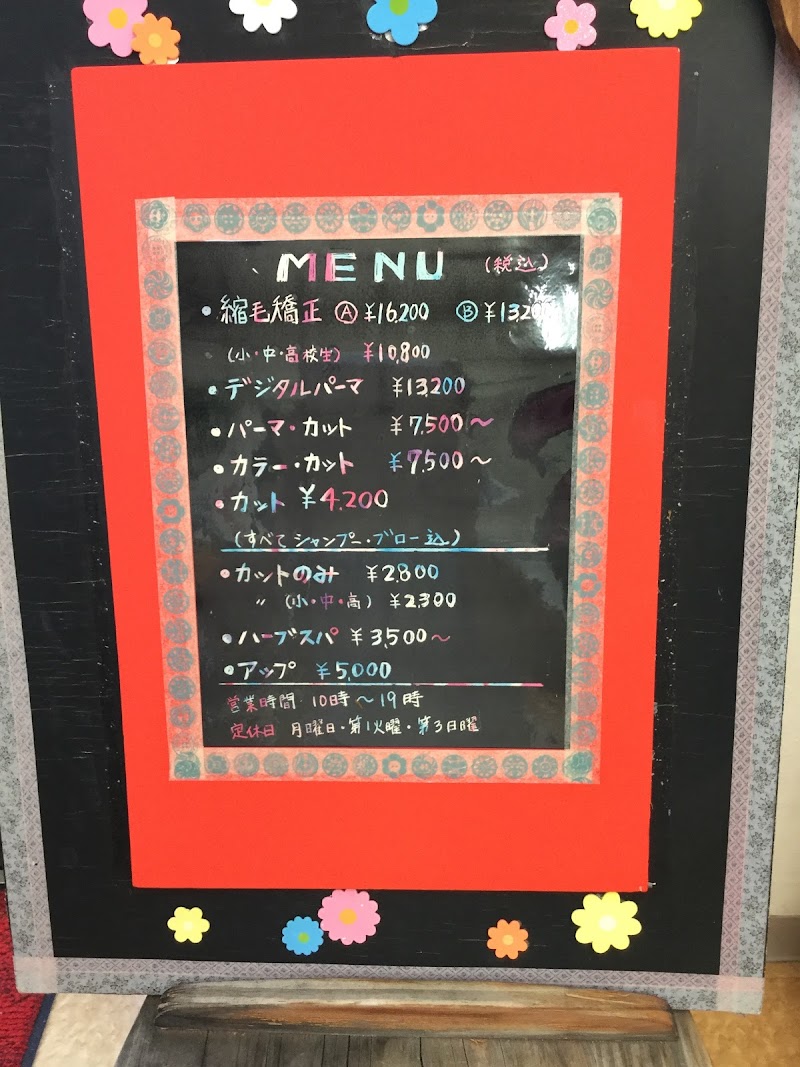 MENU (税込)
・縮毛矯正 Ⓐ ¥16,200 Ⓑ ¥13,200
(小・中・高校生) ¥10,800
・デジタルパーマ ¥13,200
・パーマ・カット ¥7,500〜
・カラー・カット ¥7,500〜
・カット ¥4,200
(すべてシャンプー・ブロー込)
・カットのみ ¥2,800
〃 (小・中・高) ¥2,300
・ハーブスパ ¥3,500〜
・アップ ¥5,000
営業時間 10時〜19時
定休日 月曜日・第1火曜・第3日曜